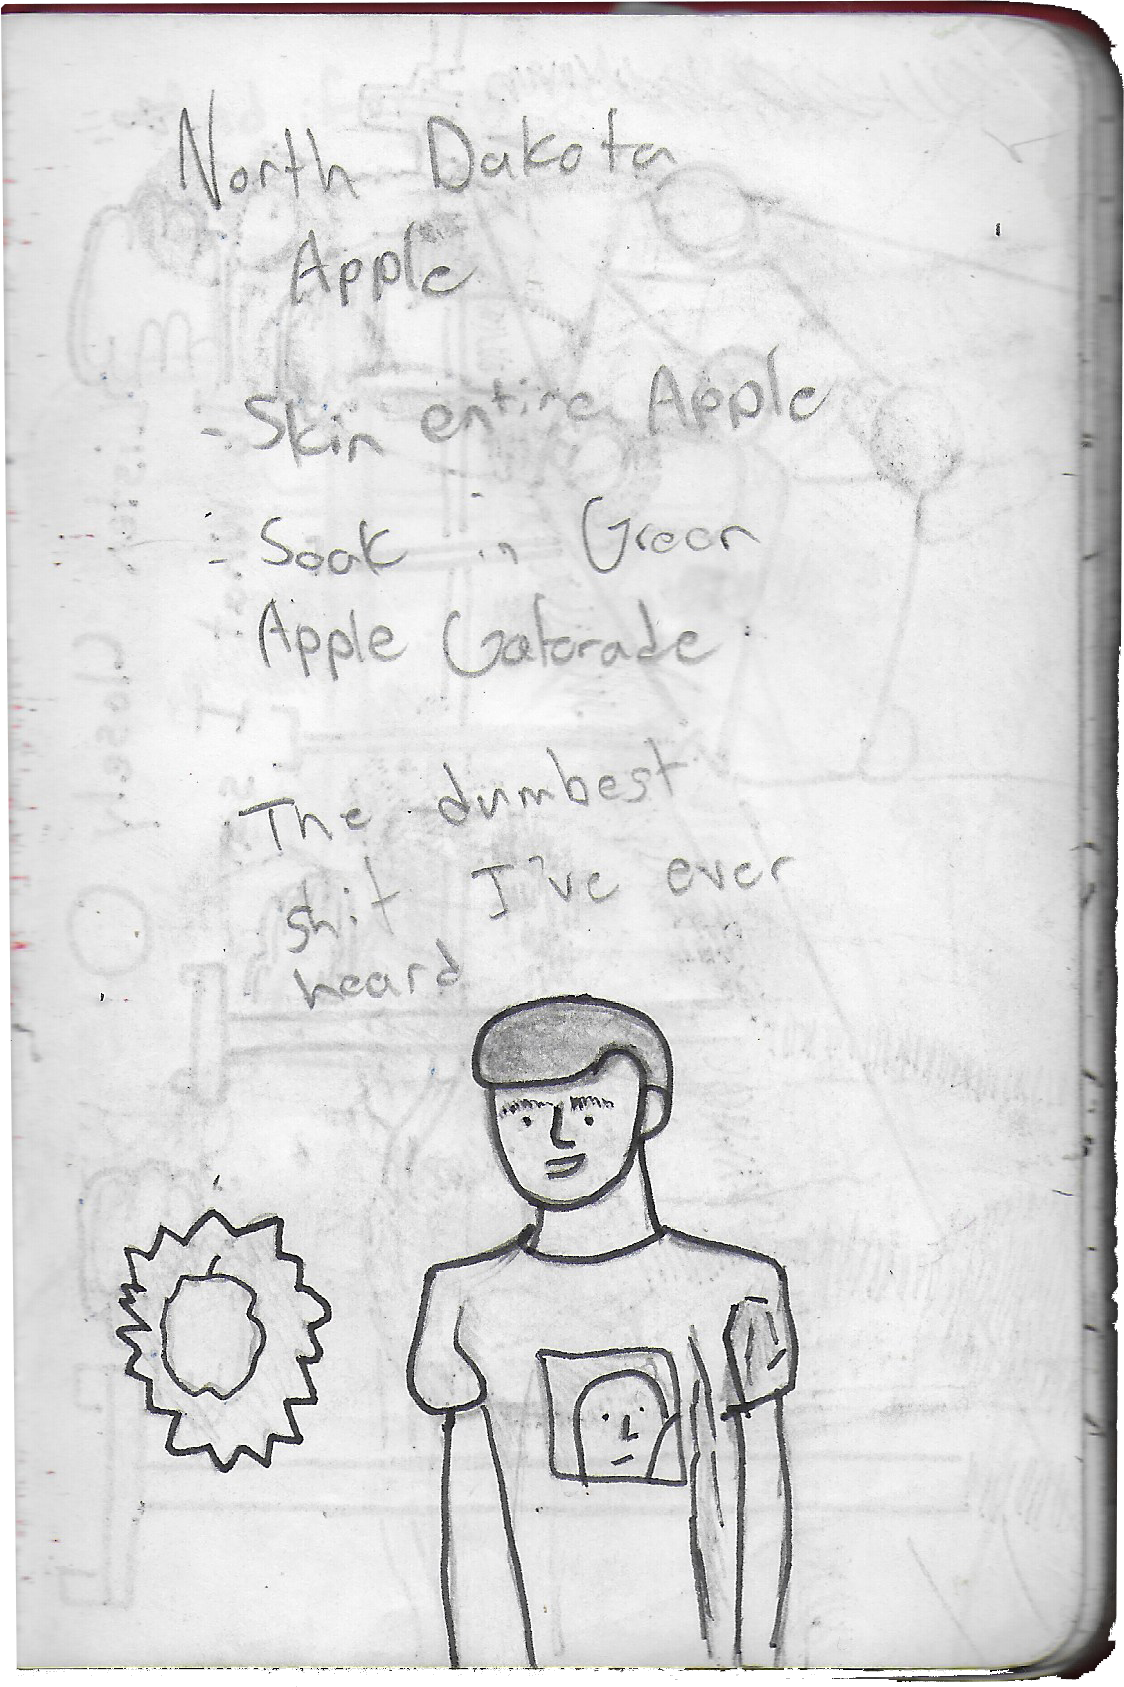 North Dakota
Apple
- Skin entire Apple
- Soak in Green
Apple Gatorade
The dumbest
shit I've ever
heard